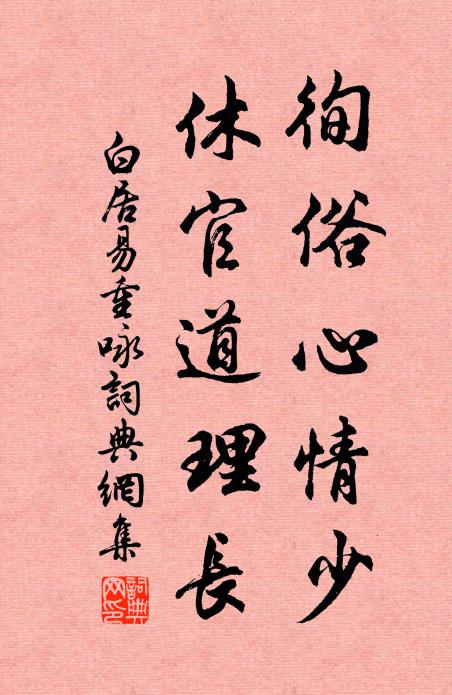 徇俗心情少
休官道理長
白居易重咏詞典網集
詞典網印